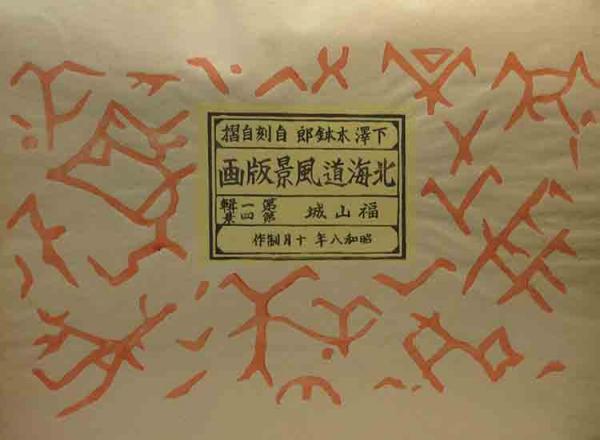 下澤木鉢郎 自刻自摺
北海道風景版画
福山城
第一輯
第四景
昭和八年十月制作